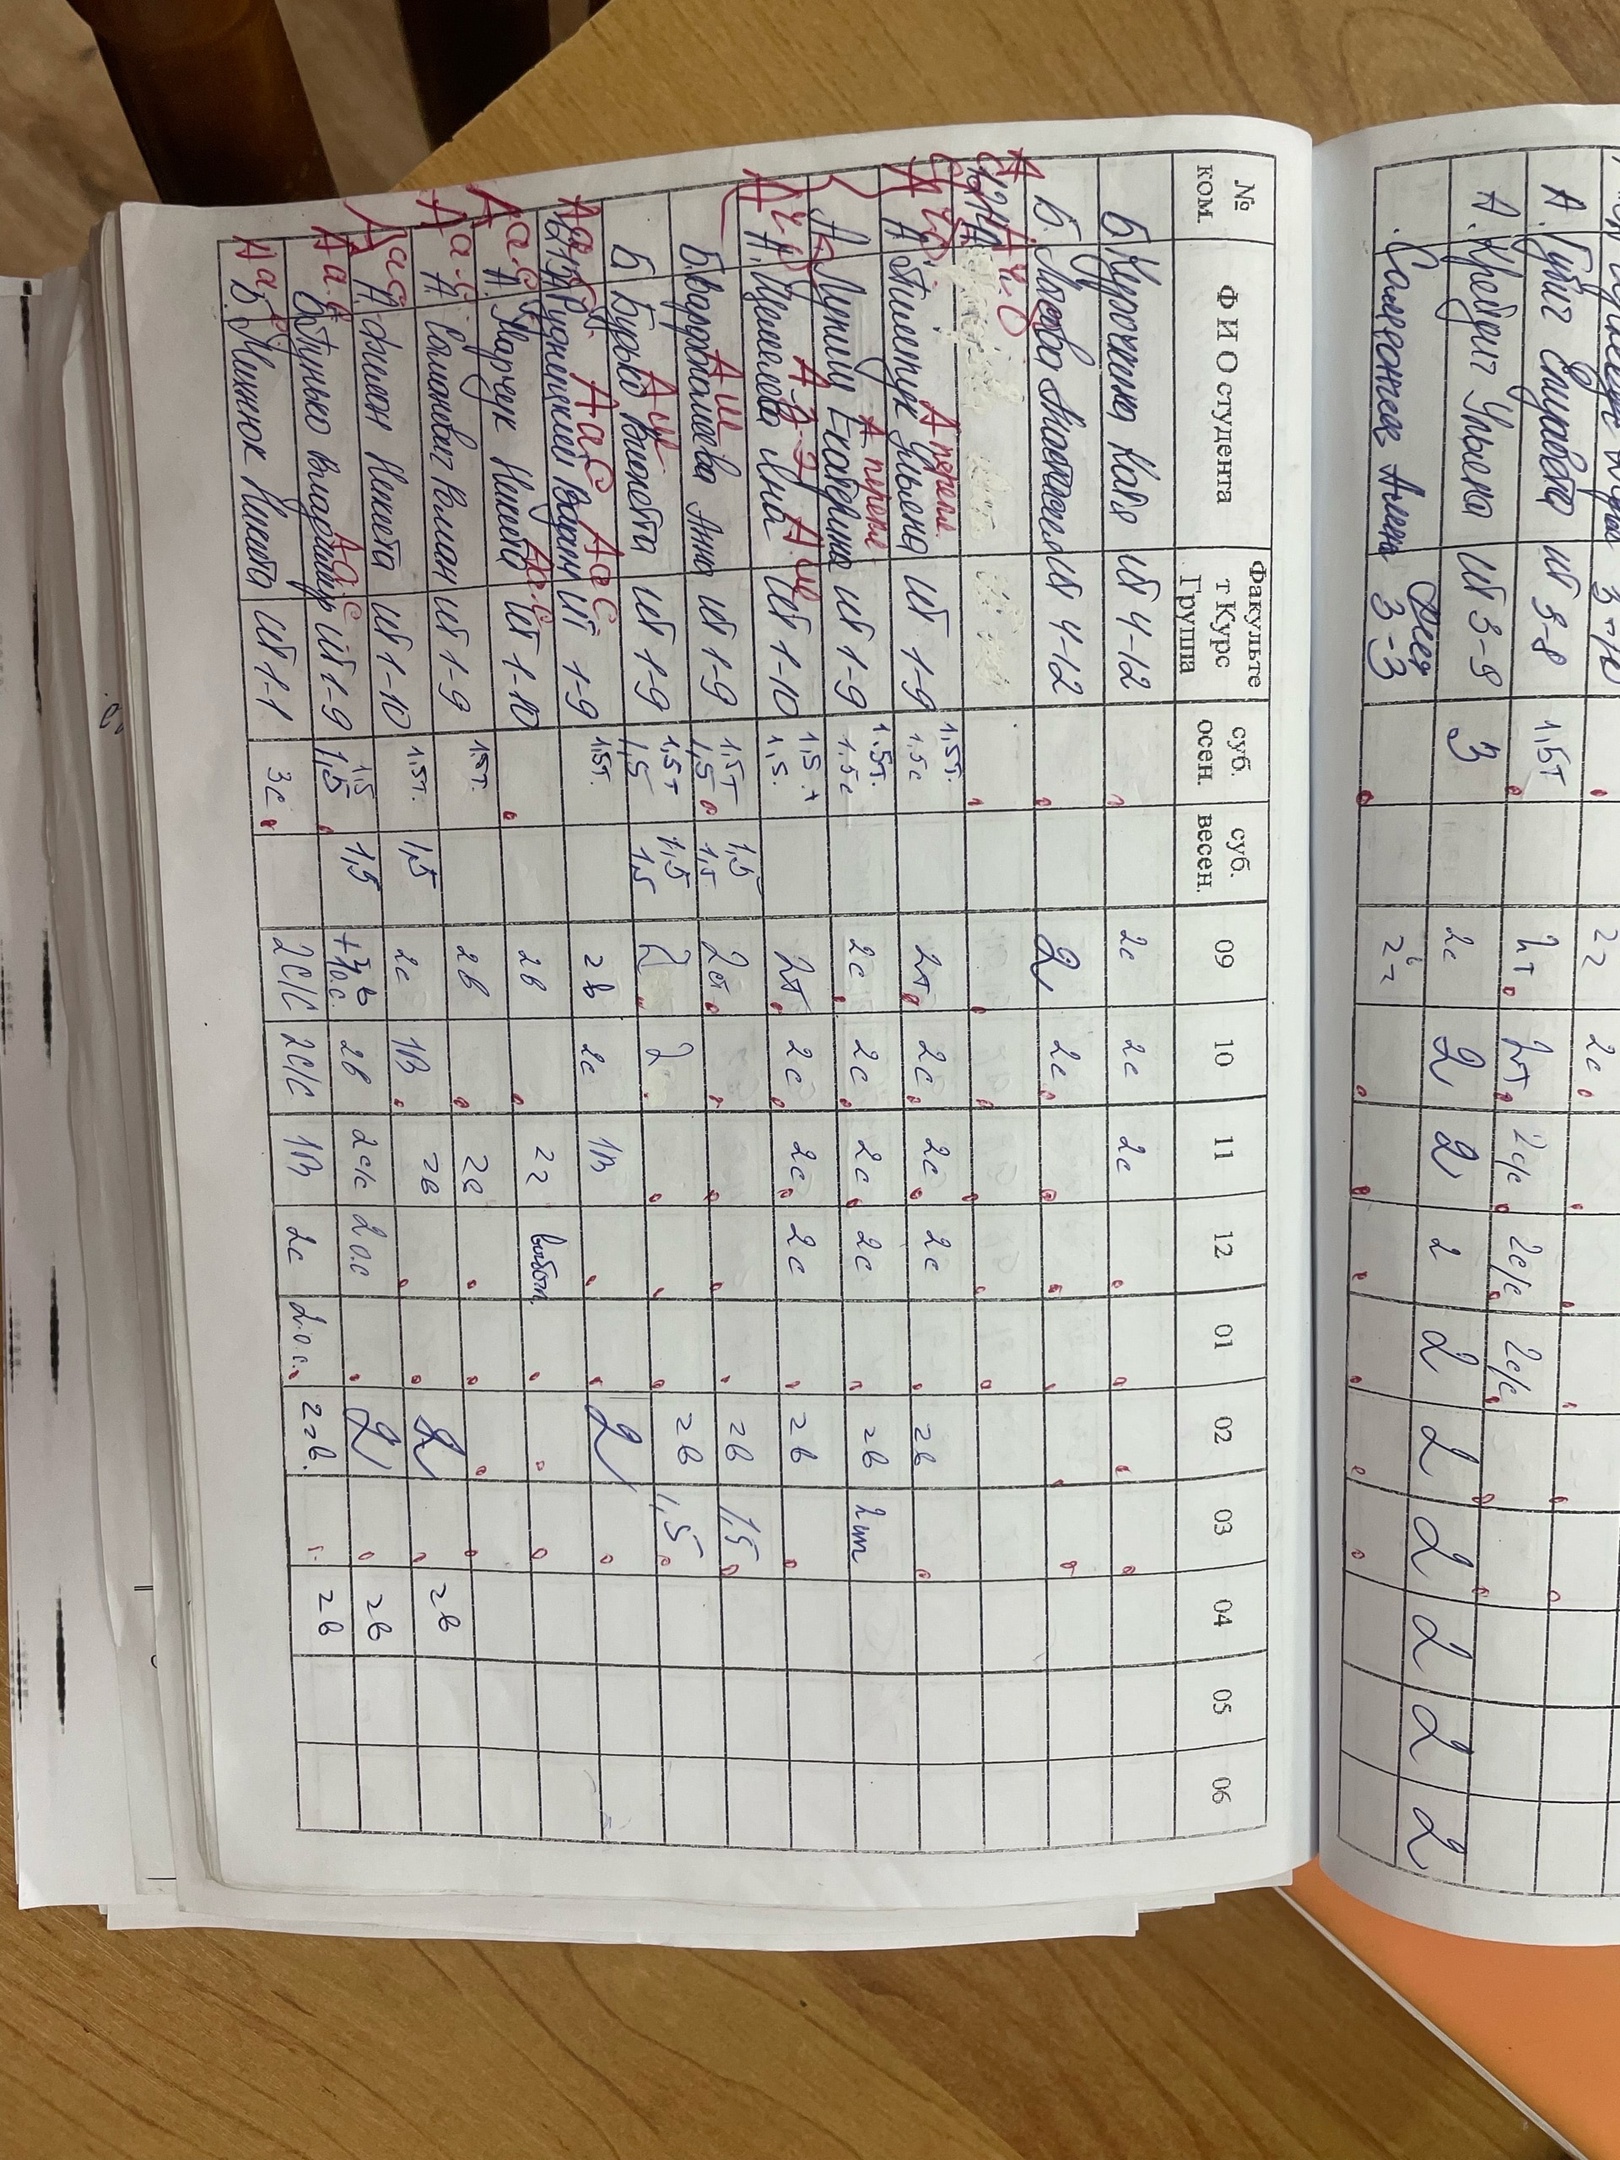 3-10 2г 2с
А. Губич Елизавета ИТ 3-8 1,5т 2т 2т 2с/с 2с/с 2с/с
А. Крейдич Ульяна ИТ 3-9 3 2с 2 2 2 2 2 2 2 2 2
3-3 2г
№ ком. Ф И О студента Факульте т Курс Группа суб. осен. суб. весен. 09 10 11 12 01 02 03 04 05 06
Б Курочкина Катя ИТ 4-12 2с 2с 2с
Б. Лысова Анастасия ИТ 4-12 2 2с
А А ч.б
1214 А.
А перепл. 1,5т.
А А Пилипук Ульяна ИТ 1-9 1,5с 2т 2с 2с 2с 2в
А перепл 1.5т.
А. Лупиш Екатерина ИТ 1-9 1.5с 2с 2с 2с 2с 2в 2шт
А. Щемелёва Яна ИТ 1-10 1,5.т 1,5. 2т 2с 2с 2с 2в
А ш
Б. Варфоломеева Анна ИТ 1-9 1,5т 1,5 1,5 1,5 2ст 2в 1,5
А ш
Б Будько Виолетта ИТ 1-9 1,5т 1,5 1,5 1,5 2 2 2в 1,5
А а с А а с
1215 А Рудницкий Вадим ИТ 1-9 1,5т. 2в 2с 1В 2
А а.с
А. Марчук Никита ИТ 1-10 2в 2г
А а.с А. Сыманевич Роман ИТ 1-9 1.5т. 2в 2в
А а с А. Филон Никита ИТ 1-10 1,5т. 1,5 2с 1В 2в 2 2в
А а.с
Б. Пунько Владимир ИТ 1-9 1,5 1,5 1,5 +1о.с. 2в 2с/с 2 о.с 2 2в
А а Б. Михнюк Никита ИТ 1-1 3с 2с/с 2с/с 1В 2с 2.о.с. 2гв. 2в